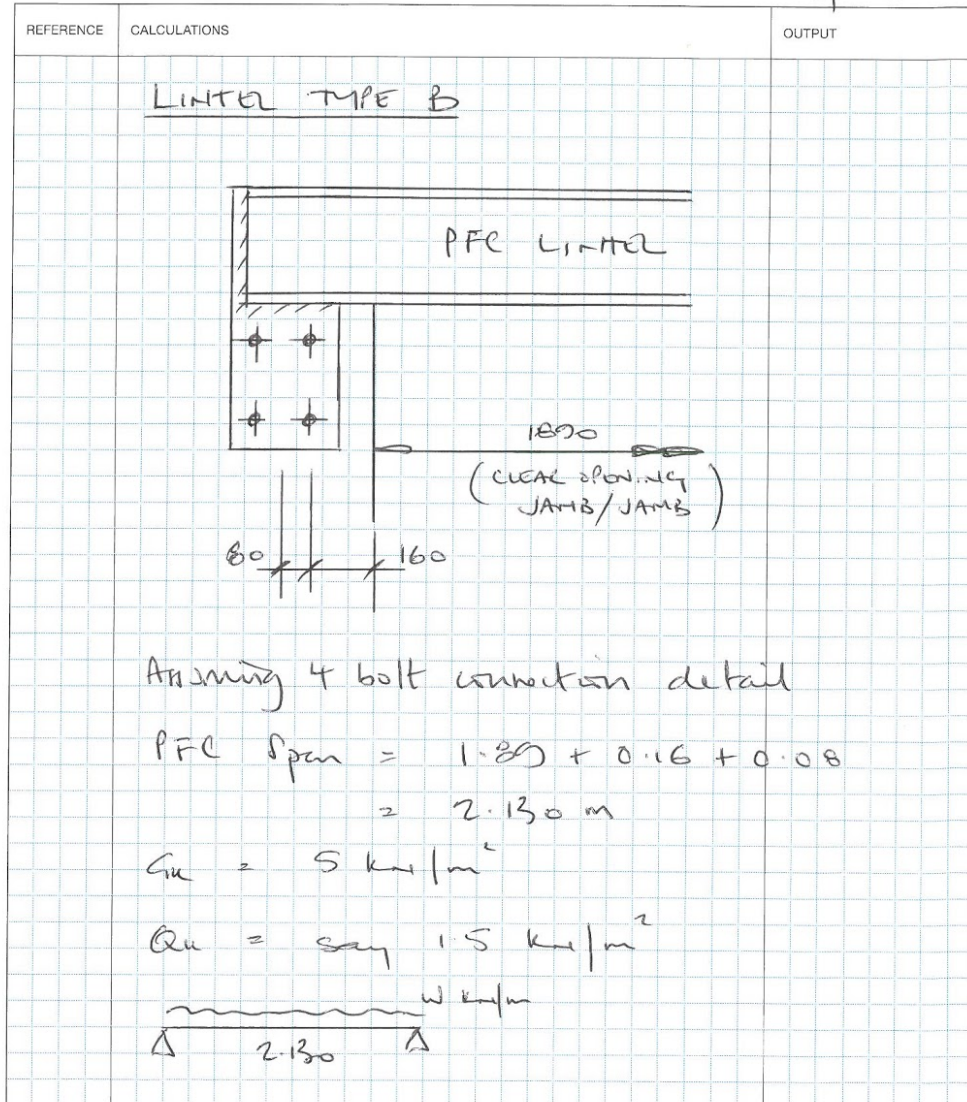 REFERENCE CALCULATIONS OUTPUT
LINTEL TYPE B
PFC LINTEL
1890
(CLEAR OPENING
JAMB/JAMB)
80 160
Assuming 4 bolt connection detail
PFC Span = 1.89 + 0.16 + 0.08
= 2.130 m
Gk = 5 kN/m²
Qk = say 1.5 kN/m²
W kN/m
2.130